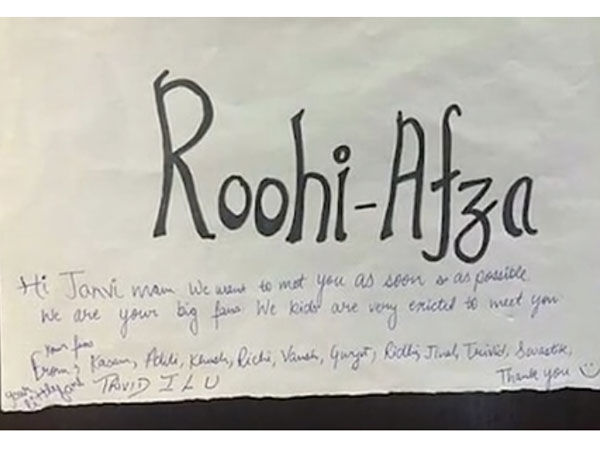 Roohi-Afza
Hi Janvi mam We want to met you as soon as possible.
We are your big fans We kids are very exictd to meet you
Your fans
From, Kasam, Aditi, Khush, Richi, Vansh, Ridhi, Jinal, Trivid, Swastik,
TRIVID I L U
Thank you